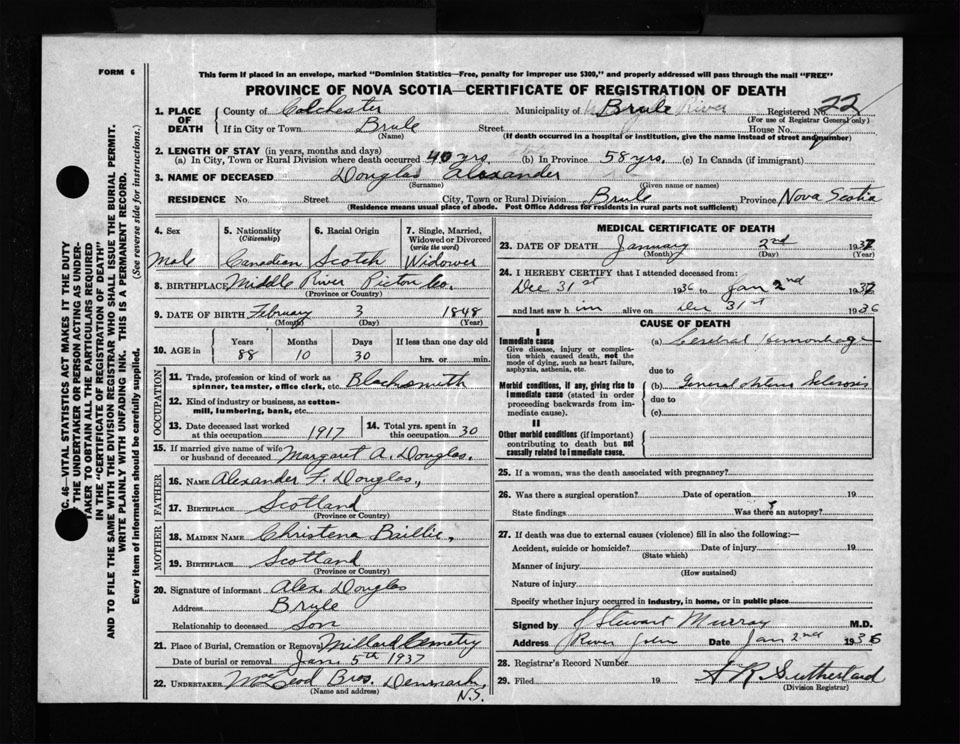 FORM 6
This form if placed in an envelope, marked "Dominion Statistics—Free, penalty for improper use $300," and properly addressed will pass through the mail "FREE"
PROVINCE OF NOVA SCOTIA—CERTIFICATE OF REGISTRATION OF DEATH
1. PLACE OF DEATH County of Colchester Municipality of Brule River Registered No. 22
(For use of Registrar General only)
If in City or Town Brule Street House No.
(Name) (If death occurred in a hospital or institution, give the name instead of street and number)
2. LENGTH OF STAY (in years, months and days)
(a) In City, Town or Rural Division where death occurred 40 yrs. (b) In Province 58 yrs. (c) In Canada (if immigrant)
3. NAME OF DECEASED Douglas Alexander
(Surname) (Given name or names)
RESIDENCE No. Street City, Town or Rural Division Brule Province Nova Scotia
(Residence means usual place of abode. Post Office Address for residents in rural parts not sufficient)
4. Sex Male
5. Nationality (Citizenship) Canadian
6. Racial Origin Scotch
7. Single, Married, Widowed or Divorced (write the word) Widower
8. BIRTHPLACE Middle River Pictou Co.
(Province or Country)
9. DATE OF BIRTH February 3 1848
(Month) (Day) (Year)
10. AGE in Years 88 Months 10 Days 30 If less than one day old hrs. or min.
OCCUPATION
11. Trade, profession or kind of work as spinner, teamster, office clerk, etc. Blacksmith
12. Kind of industry or business, as cotton-mill, lumbering, bank, etc.
13. Date deceased last worked at this occupation 1917
14. Total yrs. spent in this occupation 30
15. If married give name of wife or husband of deceased Margaret A. Douglas.
FATHER
16. NAME Alexander F. Douglas,
17. BIRTHPLACE Scotland
(Province or Country)
MOTHER
18. MAIDEN NAME Christena Baillie,
19. BIRTHPLACE Scotland
(Province or Country)
20. Signature of informant Alex. Douglas
Address Brule
Relationship to deceased Son
21. Place of Burial, Cremation or Removal Millard Cemetry
Date of burial or removal Jan. 5th 1937
22. UNDERTAKER McLeod Bros. Denmark, N.S.
(Name and address)
MEDICAL CERTIFICATE OF DEATH
23. DATE OF DEATH January 2nd 1937
(Month) (Day) (Year)
24. I HEREBY CERTIFY that I attended deceased from:
Dec 31st 1936 to Jan 2nd 1937
and last saw him alive on Dec 31st 1936
CAUSE OF DEATH
I
Immediate cause
Give disease, injury or complication which caused death, not the mode of dying, such as heart failure, asphyxia, asthenia, etc.
(a) Cerebral Hemorrhage
due to
Morbid conditions, if any, giving rise to immediate cause (stated in order proceeding backwards from immediate cause).
(b) General Arterio Sclerosis
due to
(c)
II
Other morbid conditions (if important) contributing to death but not causally related to immediate cause.
25. If a woman, was the death associated with pregnancy?
26. Was there a surgical operation? Date of operation 19
State findings Was there an autopsy?
27. If death was due to external causes (violence) fill in also the following:—
Accident, suicide or homicide? Date of injury 19
(State which)
Manner of injury
(How sustained)
Nature of injury
Specify whether injury occurred in industry, in home, or in public place
Signed by J Stewart Murray M.D.
Address River John Date Jan 2nd 1936
28. Registrar's Record Number
29. Filed 19 A R Sutherland
(Division Registrar)
SEC. 46—VITAL STATISTICS ACT MAKES IT THE DUTY
OF THE UNDERTAKER OR PERSON ACTING AS UNDER-
TAKER TO OBTAIN ALL THE PARTICULARS REQUIRED
IN THE "CERTIFICATE OF REGISTRATION OF DEATH"
AND TO FILE THE SAME WITH THE DIVISION REGISTRAR WHO SHALL ISSUE THE BURIAL PERMIT.
WRITE PLAINLY WITH UNFADING INK. THIS IS A PERMANENT RECORD.
Every item of information should be carefully supplied. (See reverse side for instructions.)